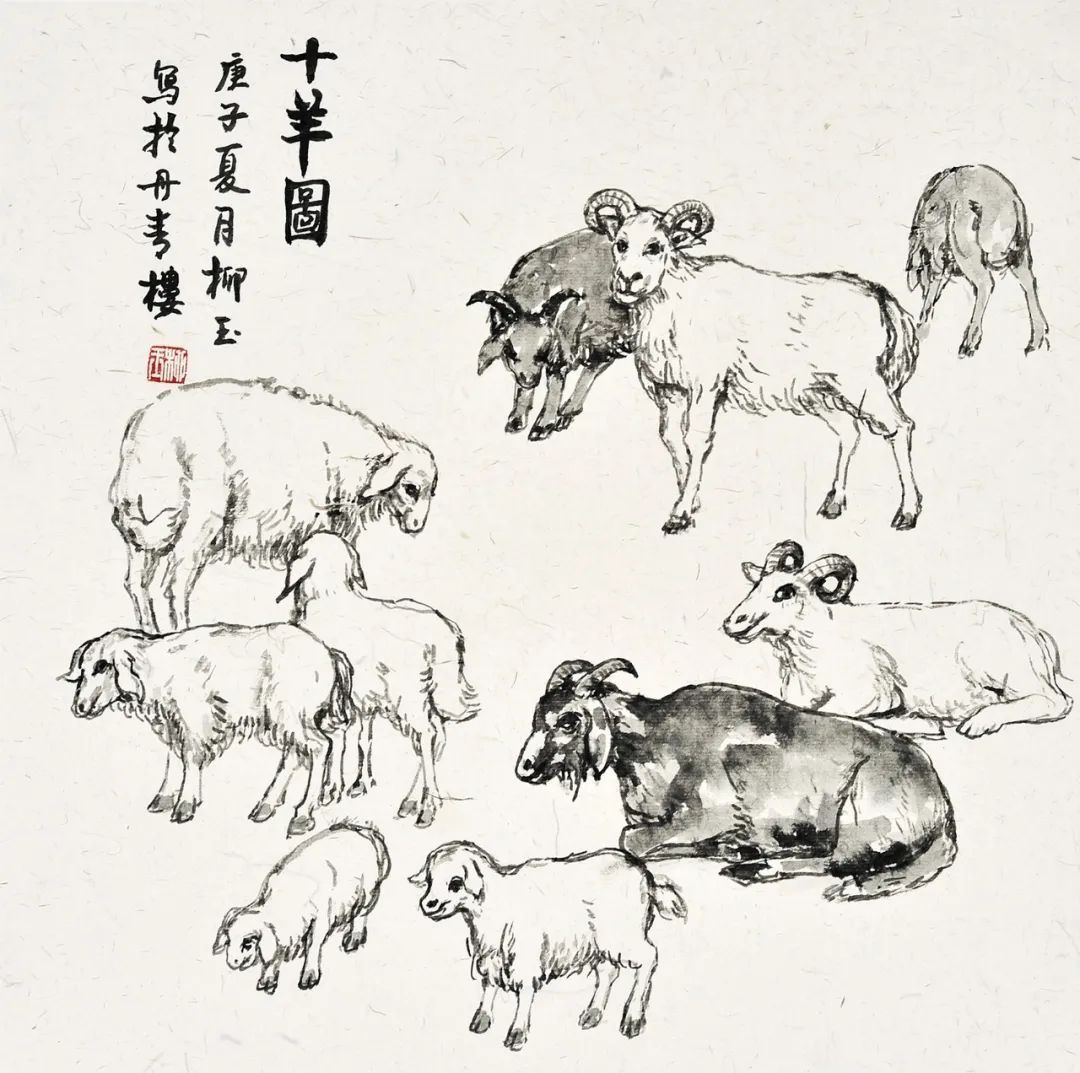 十羊圖
庚子夏月柳玉
写於丹青樓
柳玉